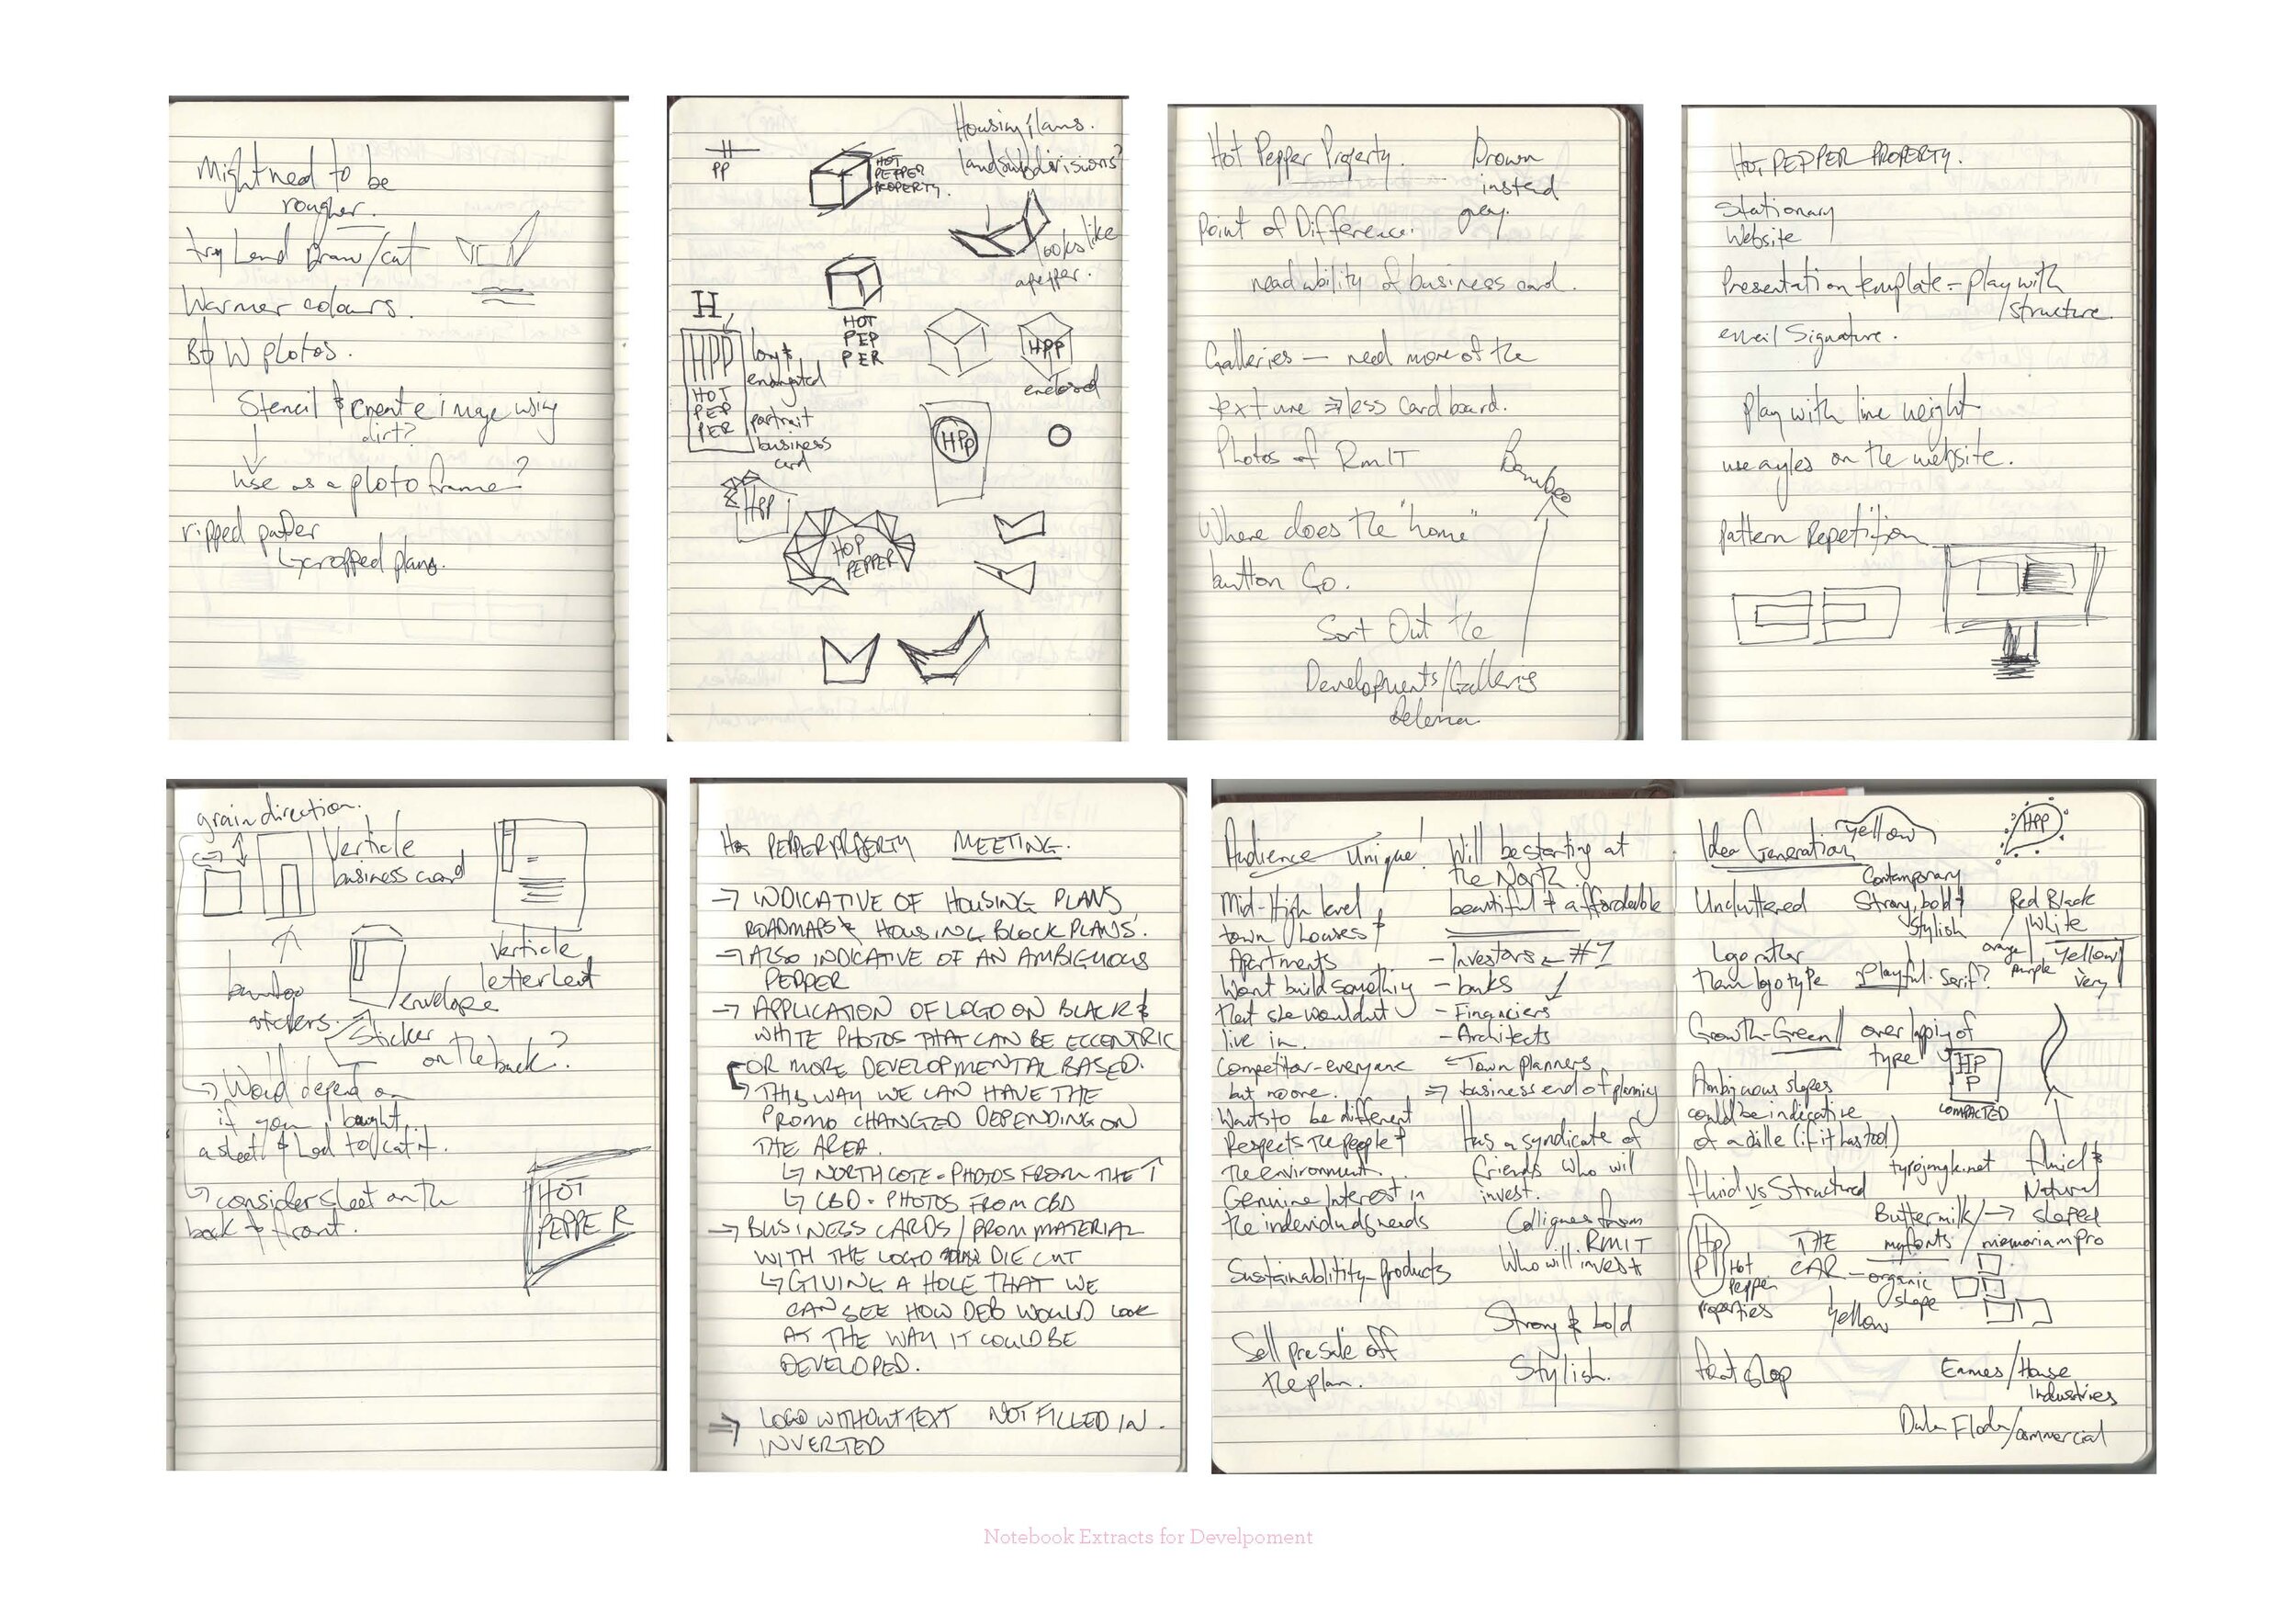 Might need to be
rougher.
try Hand Draw/cut
Warmer colours.
B & W photos.
Stencil & create image using
dirt?
use as a photo frame?
ripped paper
cropped plans.
Housing plans.
land subdivisions?
PP
HOT
PEPPER
PROPERTY.
looks like
a pepper.
H
HOT
PEP
PER
HPP
HOT
PEP
PER
long &
elongated
portrait
business
card
HPP
enclosed
HPP
HPP
HOP
PEPPER
Hot Pepper Property.
Brown
instead
grey.
Point of Difference:
readability of business card.
Galleries — need more of the
texture → less cardboard.
Photos of RMIT
Bamboo
Where does the "home"
button Go.
Sort Out the
Developments/Galleries
HOT PEPPER PROPERTY.
Stationary
Website
Presentation template = play with
/structure.
email Signature.
Play with line weight
use angles on the website.
Pattern Repetition
grain direction.
Verticle
business card
Verticle
letterhead
bamboo
stickers.
envelope
Sticker
on the back?
Would depend on
if you bought
a sheet & had to cut it.
consider sheet on the
back & front.
HOT
PEPPER
HOT PEPPER PROPERTY MEETING.
→ INDICATIVE OF HOUSING PLANS,
ROADMAPS & HOUSING BLOCK PLANS.
→ ALSO INDICATIVE OF AN AMBIGUOUS
PEPPER
→ APPLICATION OF LOGO ON BLACK &
WHITE PHOTOS THAT CAN BE ECCENTRIC
OR MORE DEVELOPMENTAL BASED.
↳ THIS WAY WE CAN HAVE THE
PROMO CHANGED DEPENDING ON
THE AREA.
↳ NORTHCOTE = PHOTOS FROM THE ↑
↳ CBD = PHOTOS FROM CBD
→ BUSINESS CARDS/PROMO MATERIAL
WITH THE LOGO DIE CUT
↳ GIVING A HOLE THAT WE
CAN SEE HOW DEB WOULD LOOK
AT THE WAY IT COULD BE
DEVELOPED.
⇒ LOGO WITHOUT TEXT NOT FILLED IN.
INVERTED
Audience Unique!
Mid-High level
town houses &
Apartments
Want build something
that she wouldn't
live in.
Competitor - everyone
but no one.
Wants to be different
Respects the people &
the environment.
Genuine Interest in
the individuals needs
Sustainablitity - products
Sell pre sale off
the plan.
Will be starting at
the North.
beautiful & affordable
- Investors ← #1
- banks
- Financiers
- Architects
- Town planners
⇒ business end of planning
Has a syndicate of
friends who will
invest.
Collignes from
RMIT
Who will invest
Strong & bold
Stylish.
Idea Generation
yellow
HPP
Uncluttered
Contemporary
Strong, bold &
Stylish
Red Black
/ White
orange
purple
Yellow
Very
Logo rather
than logotype
Playful. Serif?
Growth - Green
overlapping of
type
HP
P
COMPACTED
Ambiguous shapes
could be indicative
of a chille (if it has too!)
Fluid vs Structured
fluid &
Natural
shaped
Buttermilk/→
myfonts / memoriam pro
HP
P
Hot
Pepper
Properties
THE
CAR — organic
shape
Yellow
Eames/House
Industries
/commercial
Notebook Extracts for Develpoment